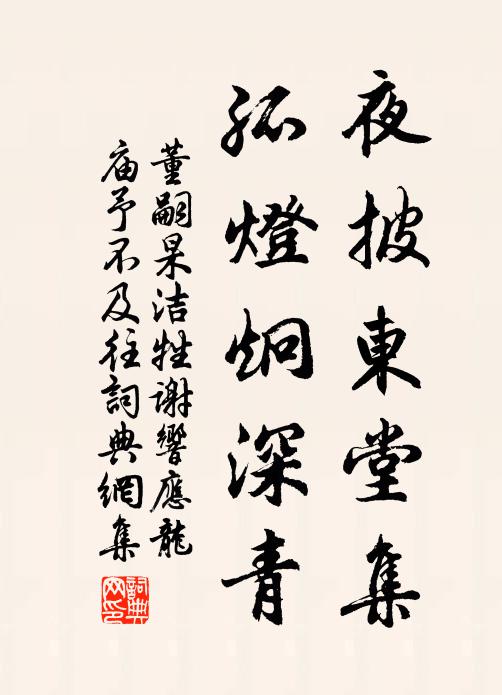 夜披東堂集
孤燈炯深青
董嗣杲洁牲謝響應龍
庙予不及往詞典網集
詞典網印